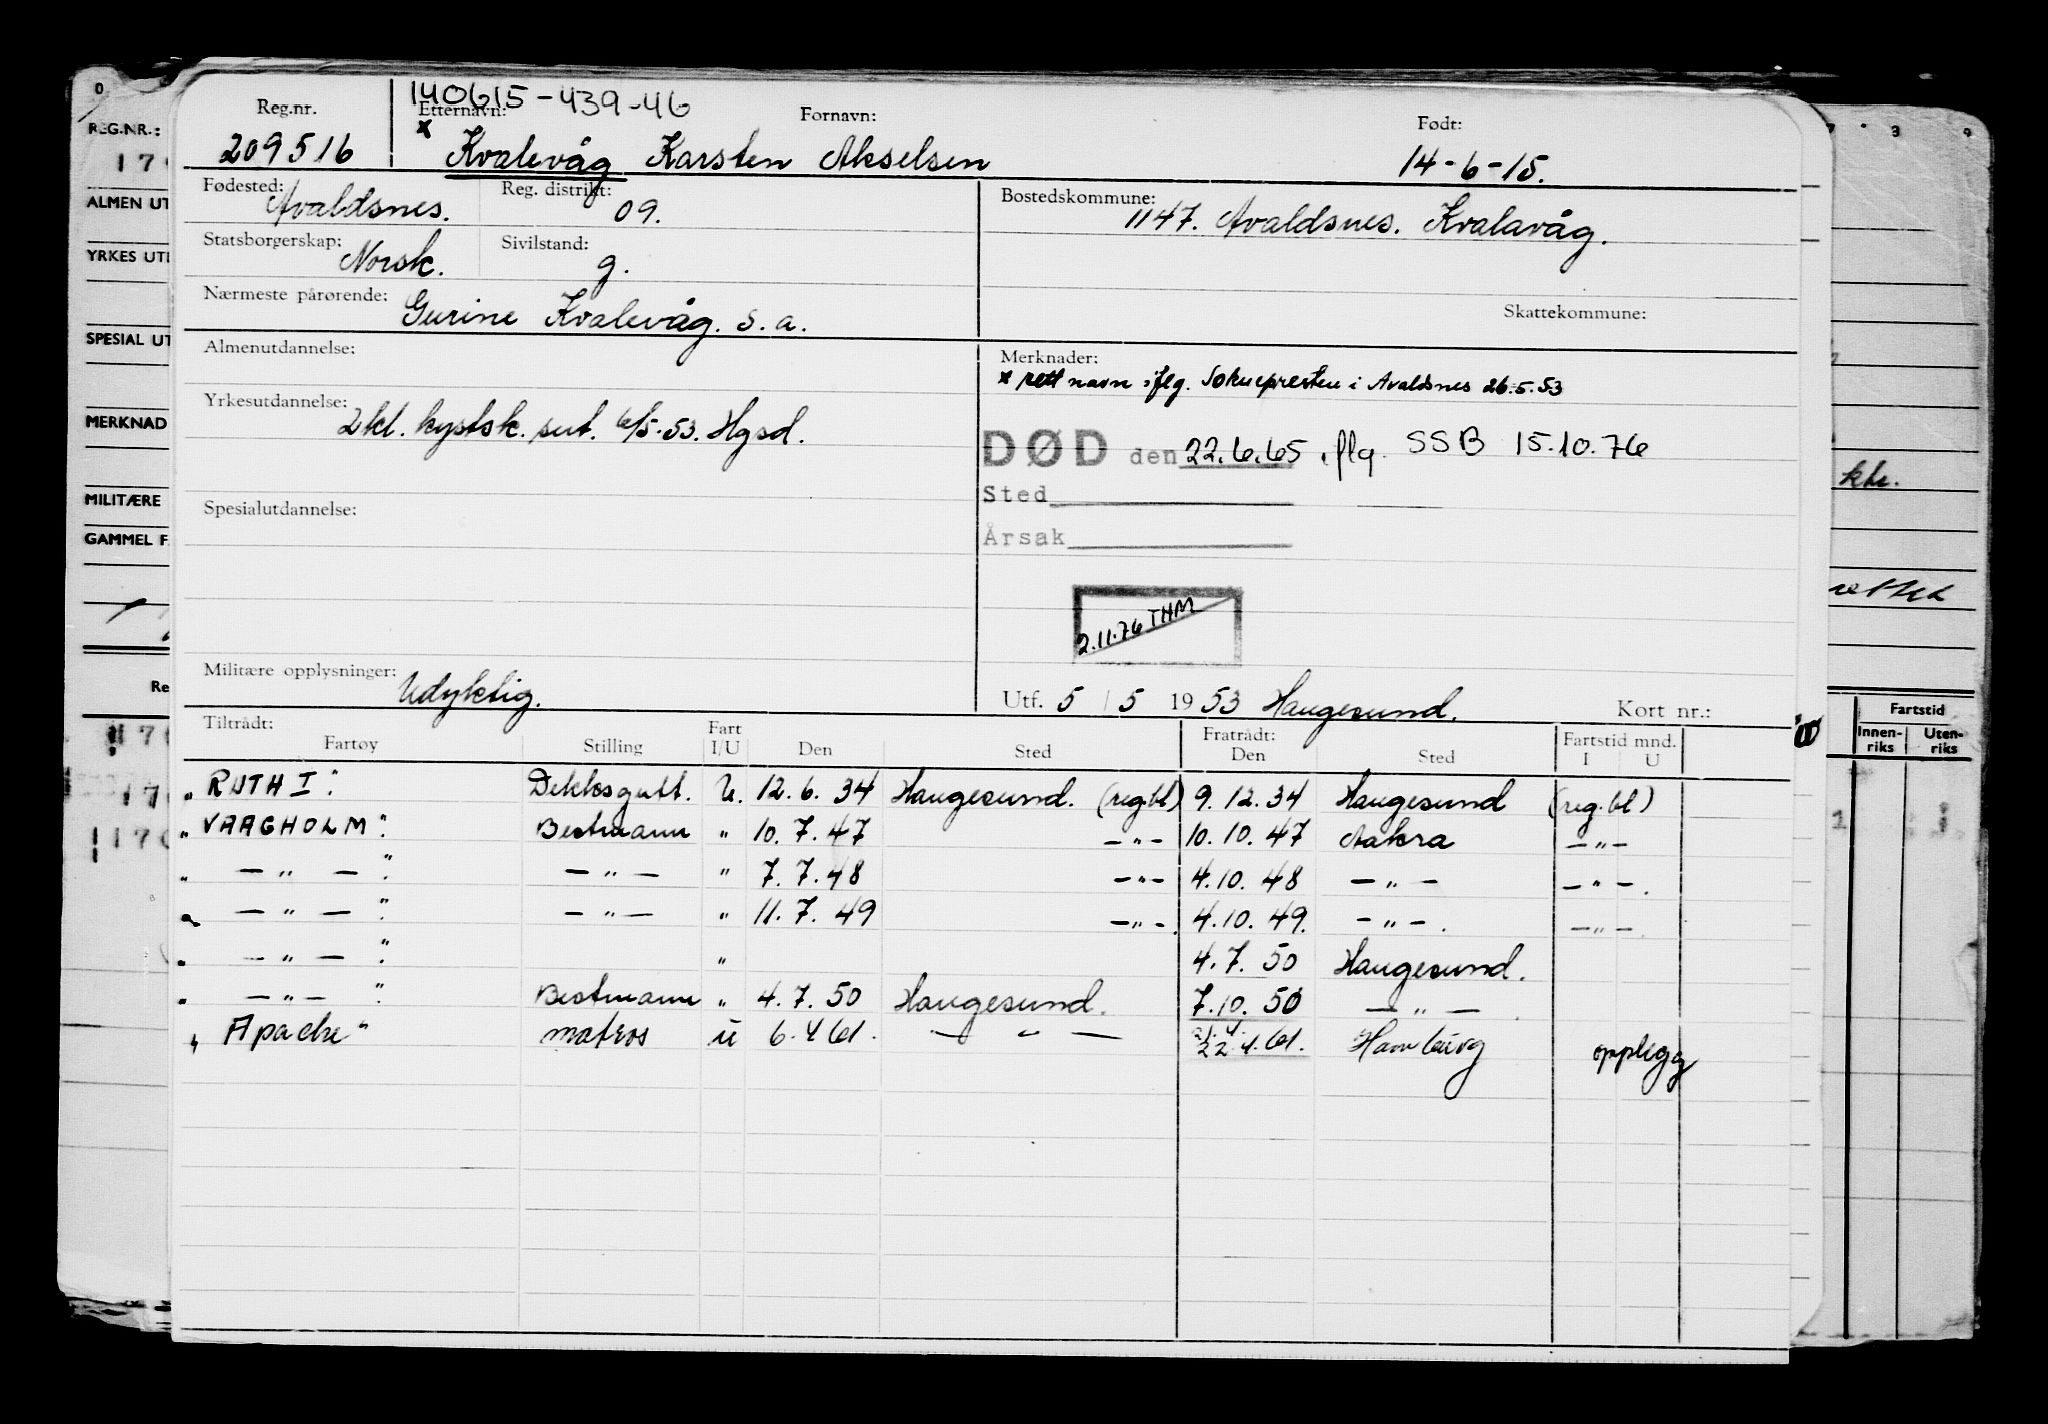 140615-439-46
Reg.nr. Etternavn: Fornavn: Født:
209516 x Kvalevåg Karsten Akselsen 14-6-15.
Fødested: Avaldsnes. Reg. distrikt: 09. Bostedskommune: 1147. Avaldsnes. Kvalavåg.
Statsborgerskap: Norsk. Sivilstand: g.
Nærmeste pårørende: Gurine Kvalevåg. s.a. Skattekommune:
Almenutdannelse: Merknader:
x rett navn iflg. Soknepresten i Avaldsnes 26.5.53
Yrkesutdannelse: 2kl. kystsk. sert. 6/5-53. Hgsd.
DØD den 22.6.65 iflg. SSB 15.10.76
Sted
Årsak
Spesialutdannelse:
2.11.76 THM
Militære opplysninger: Udyktig. Utf. 5/5 1953 Haugesund. Kort nr.:
Tiltrådt: Fart Fratrådt: Fartstid mnd.
Fartøy Stilling I/U Den Sted Den Sted I U
"RUTH I". Dekksgutt. U. 12.6.34 Haugesund. (reg.bl) 9.12.34 Haugesund (reg.bl)
"VAAGHOLM". Bestmann " 10.7.47 -"- 10.10.47 Aakra -"-
" -"- ". -"- " 7.7.48 -"- 4.10.48 -"- -"-.
" -"- ". -"- " 11.7.49 -"-. 4.10.49. -"-. -"-.
" -"- ". " 4.7.50 Haugesund.
" -"- ". Bestmann " 4.7.50 Haugesund. 7.10.50 -"-.
"Apache" matros u 6.4 61. -"- 22.4.61. Hamburg opplegg
REG.NR.:
ALMEN UT
YRKES UTD
SPESIAL UT
MERKNAD
MILITÆRE
GAMMEL F
Re
kte.
Fartstid
Innen-riks Uten-riks